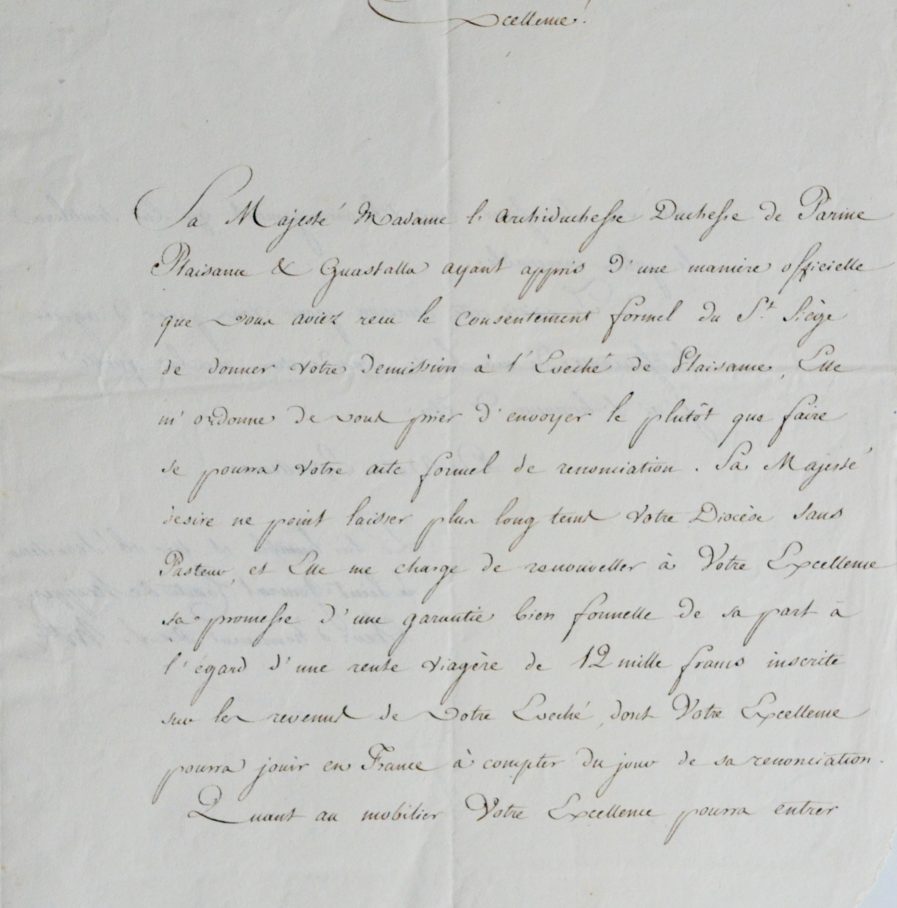 Excellence.
Sa Majesté Madame l'Archiduchesse Duchesse de Parme
Plaisance & Guastalla ayant appris d'une manière officielle
que vous aviez recu le consentement formel du S.t Siège
de donner votre demission à l'Evêché de Plaisance, Elle
m'ordonne de vous prier d'envoyer le plutôt que faire
se pourra votre acte formel de renonciation. Sa Majesté
desire ne point laisser plus long tems votre Diocèse sans
Pasteur, et Elle me charge de renouveller à Votre Excellence
sa promesse d'une garantie bien formelle de sa part à
l'égard d'une rente viagère de 12 mille francs inscrite
sur les revenus de votre Evêché, dont Votre Excellence
pourra jouir en France à compter du jour de sa renonciation.
Quant au mobilier Votre Excellence pourra entrer